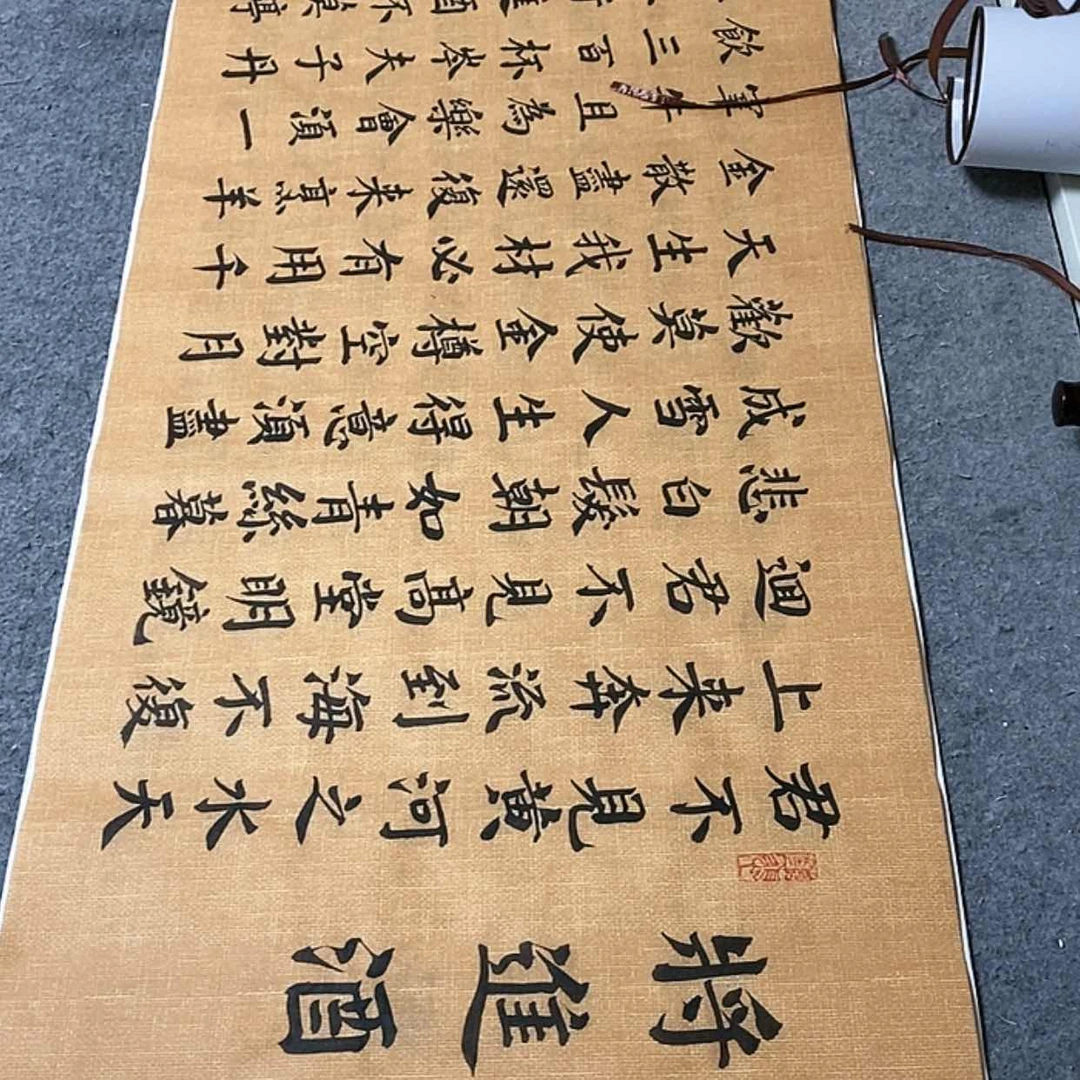 將進酒
君不見黃河之水天
上来奔流到海不復
迴君不見高堂明鏡
悲白髮朝如青絲暮
成雪人生得意須盡
歡莫使金樽空對月
天生我材必有用千
金散盡還復来烹羊
宰牛且為樂會須一
飲三百杯岑夫子丹
進酒杯莫停